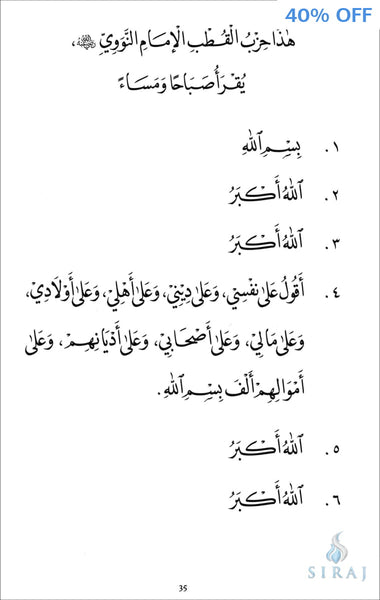 40% OFF
هٰذَا حِزْبُ الْقُطْبِ الْإِمَامِ النَّوَوِيِّ ،
يُقْرَأُ صَبَاحًا وَمَسَاءً
١. بِسْمِ ٱللهِ
٢. ٱللهُ أَكْبَرُ
٣. ٱللهُ أَكْبَرُ
٤. أَقُولُ عَلَىٰ نَفْسِي، وَعَلَىٰ دِينِي، وَعَلَىٰ أَهْلِي، وَعَلَىٰ أَوْلَادِي،
وَعَلَىٰ مَالِي، وَعَلَىٰ أَصْحَابِي، وَعَلَىٰ أَدْيَانِهِمْ، وَعَلَىٰ
أَمْوَالِهِمْ أَلْفَ بِسْمِ ٱللهِ.
٥. ٱللهُ أَكْبَرُ
٦. ٱللهُ أَكْبَرُ
SIRAJ
35